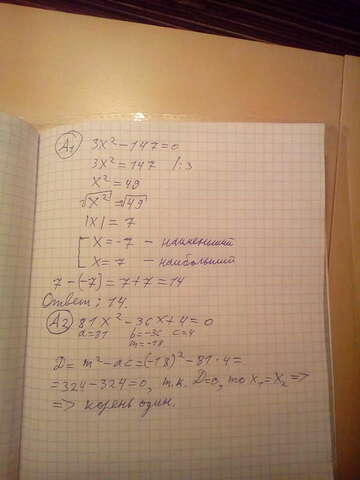 А1 3x² - 147 = 0
3x² = 147 /:3
x² = 49
√x² = √49
|x| = 7
[ x = -7 - наименший
x = 7 - наибольший
7 - (-7) = 7 + 7 = 14
Ответ: 14.
А2 81x² - 36x + 4 = 0
a=81 b=-36 c=4
m=-18
D = m² - ac = (-18)² - 81·4 =
= 324 - 324 = 0, т.к. D=0, то x₁ = x₂ =>
=> корень один.